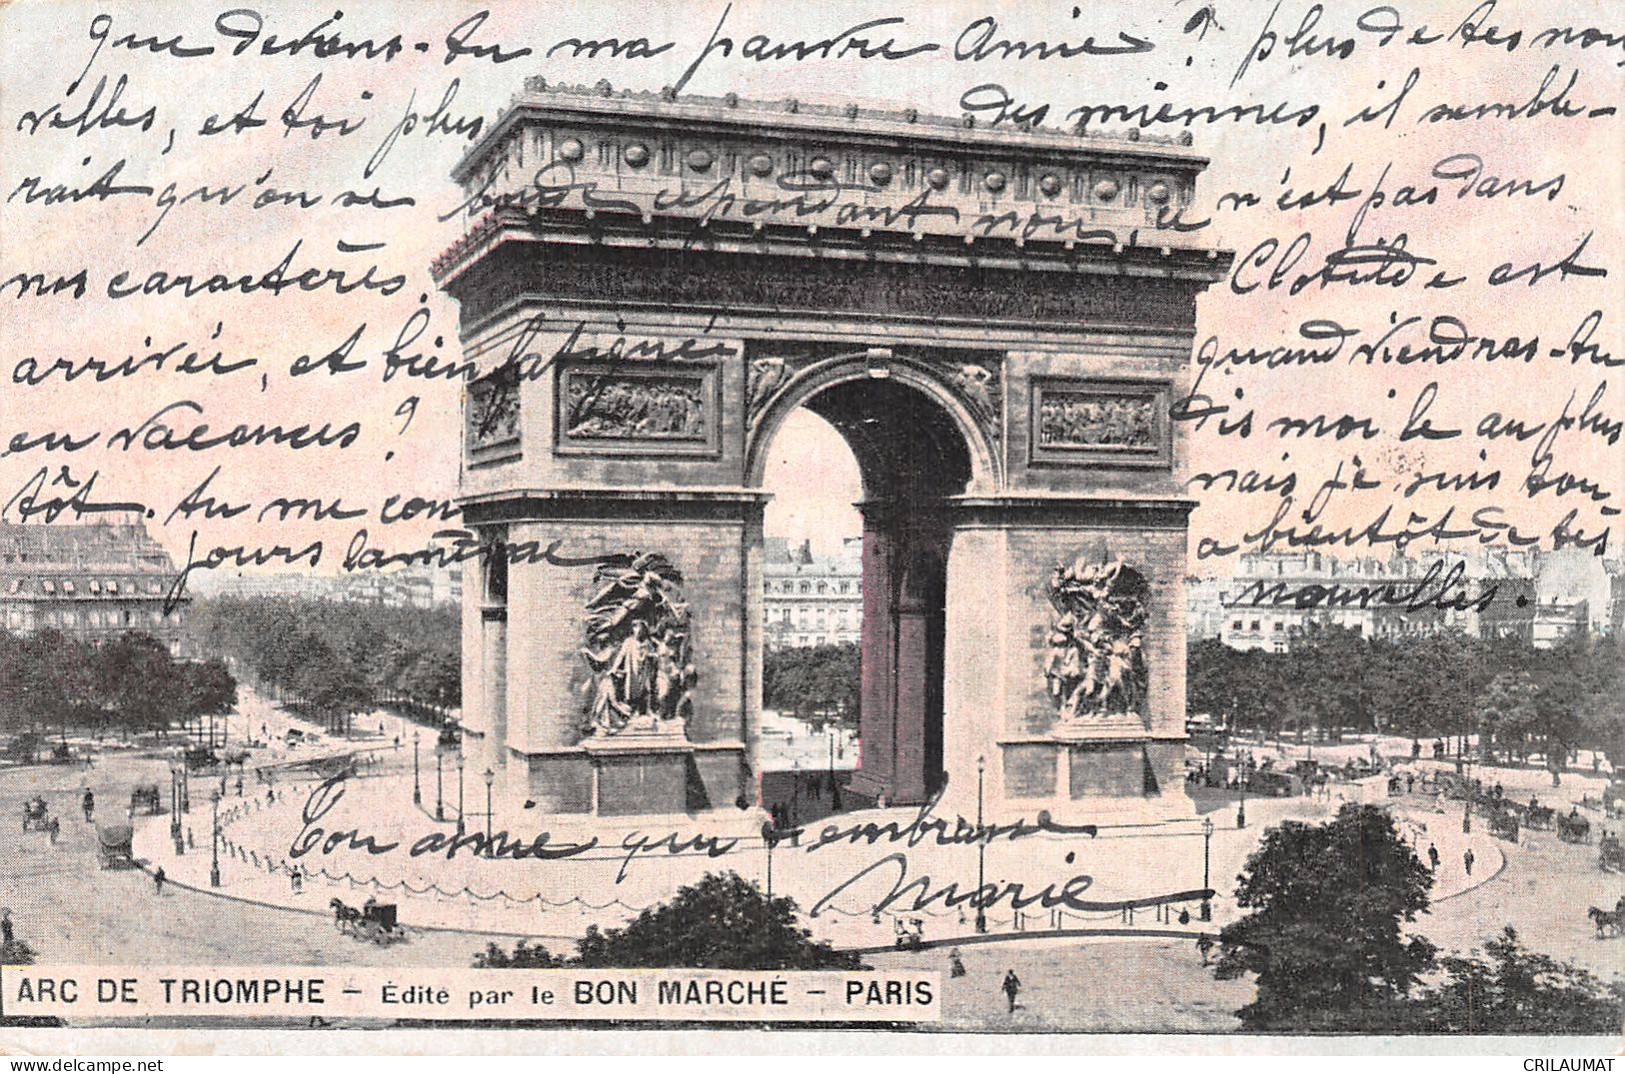 que deviens-tu ma pauvre Amie ? plus de tes nou
velles, et toi plus des miennes, il semble-
rait qu'on se boude cependant non, ce n'est pas dans
nos caractères. Clotilde est
arrivée, et bien fatiguée quand viendras-tu
en vacances ? dis moi le au plus
tôt. tu me con mais je suis tou
jours la même a bientôt de tes
nouvelles.
Ton amie qui t'embrasse
Marie
ARC DE TRIOMPHE - Édité par le BON MARCHÉ - PARIS
CRILAUMAT